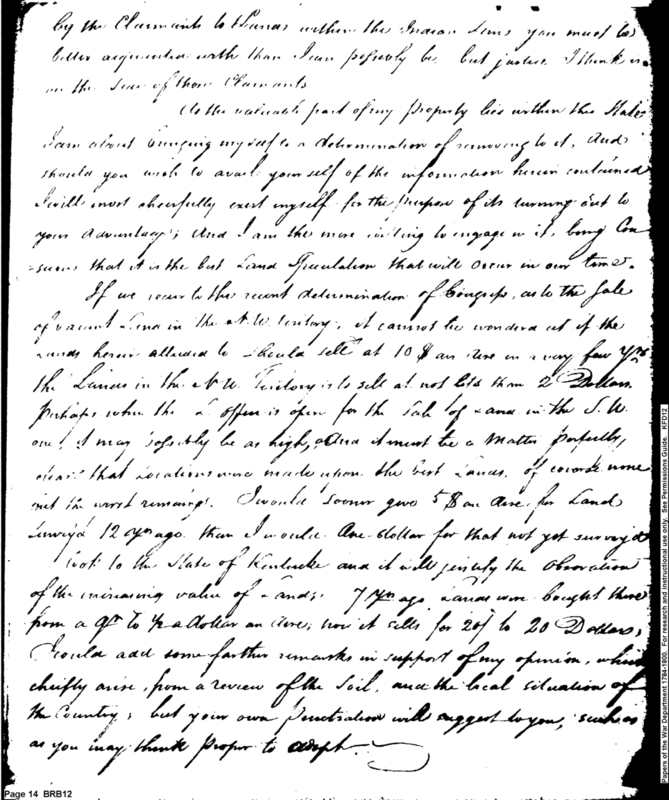 by the Claimants to Lands within the Indian Lines you must be
better acquainted with than I can possibly be, but justice I think is
on the side of those Claimants
As the valuable part of my Property lies within this State
I am about bringing myself to a determination of removing to it, And
should you wish to avail yourself of the information herein contained
I will most cheerfully exert myself for the purpose of its turning out to
your Advantage; And I am the more willing to engage in it, being Con
that it is the best Land Speculation that will occur in our time.
If we recur to the recent determination of Congress, as to the Sale
of vacant Land in the N.W. Teritory, it cannot be wondered at if the
Lands herein alluded to should sell at 10 $ an Acre in a very few Yrs
the Lands in the N W. Territory is to sell at not less than 2 Dollars.
Perhaps when the L. office is open for the Sale of Land in the S. W.
one, it may possibly be as high, And it must be a Matter perfectly
clear that Locations were made upon the best Lands, of course none
but the worst remains. I would sooner give 5 $ an Acre for Land
survey'd 12 yrs ago than I would One dollar for that not yet survey'd
Look to the State of Kentucke and it will justify the Observation
of the increasing value of Lands; 7 Yrs ago Lands were bought there
from a Qr to ½ a dollar an Acre; now it sells for 20/ to 20 Dollars,
I could add some farther remarks in support of my opinion, which
cheifly arise, from a review of the Soil, and the local situation of
the Country; but your own Penetration will suggest to you, such as
as you may think Proper to adopt.
Page 14 BRB12
Papers of the War Department 1784-1800. For research and instructional use only. See Permissions Guide. KFD12